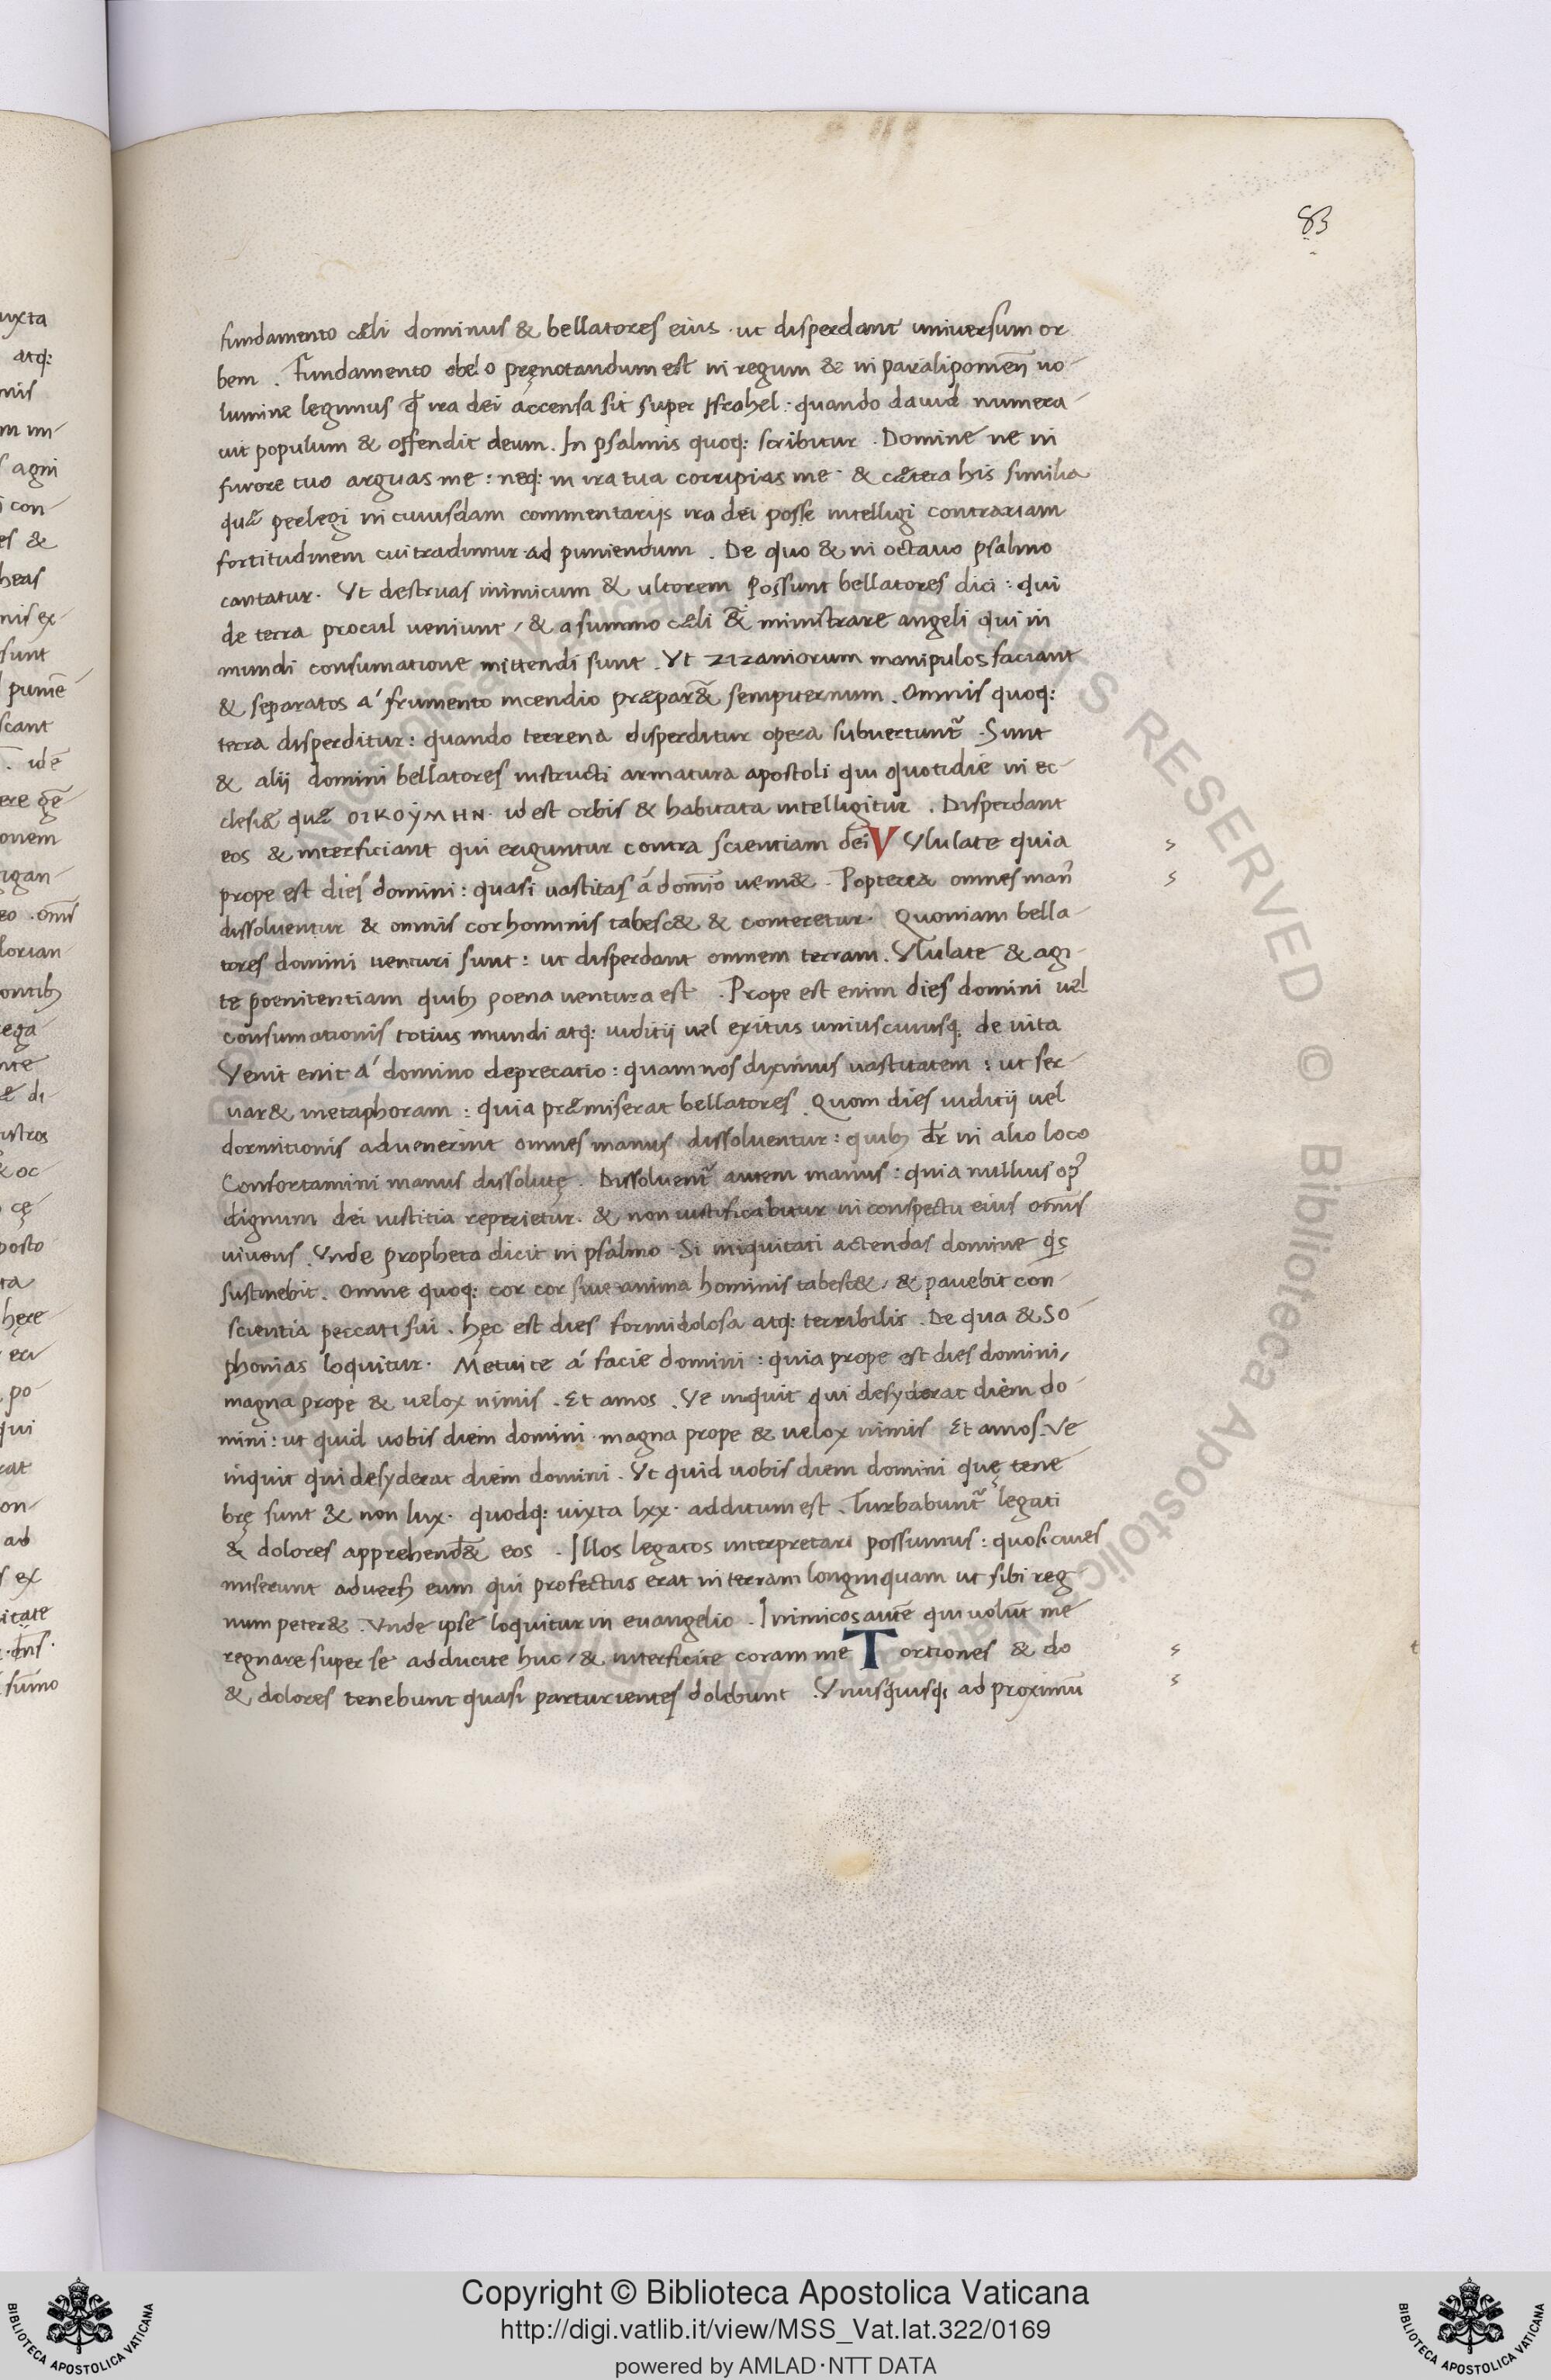 83
fundamento cæli dominus & bellatores eius · ut disperdant universum or
bem . Fundamento obelo pręnotandum est in regum & in paralipomen̄ uo-
lumine legimus q̄ ira dei accensa sit super Israhel : quando dauid numera-
uit populum & offendit deum . In psalmis quoq: scribitur . Domine ne in
furore tuo arguas me : neq: in ira tua corripias me · & cætera his similia
quæ perlegi in cuiusdam commentarijs ira dei posse intelligi contrariam
fortitudinem cui tradimur ad puniendum . De quo & in octauo psalmo
cantatur . Vt destruas inimicum & ultorem Possunt bellatores dici : qui
de terra procul ueniunt / & a summo cæli & ministrare angeli qui in
mundi consumatione mittendi sunt . Vt zizaniorum manipulos faciant
& separatos á frumento incendio præpar& sempiternum . Omnis quoq:
terra disperditur : quando terrena disperditur opera subuertunt᷑ . Sunt
& alij domini bellatores instructi armatura apostoli qui quotidie in ec-
clesiæ quæ OIKOÝMHN · id est orbis & habitata intelligitur . Disperdant
eos & interficiant qui eriguntur contra scientiam dei V Vlulate quia
prope est dies domini : quasi uastitas á domino ueni& . Popterea omnes man᷑
dissoluentur & omnis cor hominis tabesc& & conteretur . Quoniam bella-
tores domini uenturi sunt : ut disperdant omnem terram . Vlulate & agi-
te poenitentiam quib; poena uentura est . Prope est enim dies domini uel
consumationis totius mundi atq: iuditij uel exitus uniuscuiusq; de uita
Venit enit á domino deprecatio : quam nos diximus uastitatem : ut ser-
uar& metaphoram : quia præmiserat bellatores . Quom dies iuditij uel
dormitionis aduenerint omnes manus dissoluentur : quib; dr̄ in alio loco
Confortamini manus dissolutę . Dissoluent᷑ autem manus : quia nullius op᷑
dignum dei iustitia reperietur . & non iustificabitur in conspectu eius omīs
uiuens . Vnde propheta dicit in psalmo · Si iniquitati actendas domine q̄s
sustinebit . Omne quoq: cor cor siue anima hominis tabesc& / & pauebit con-
scientia peccati sui . hęc est dies formidolosa atq: terribilis . De qua & So-
phonias loquitur . Metuite á facie domini : quia prope est dies domini /
magna prope & uelox nimis . Et amos . Ve inquit qui desyderat diem do-
mini : ut quid uobis diem domini · magna prope & uelox nimis Et amos . Ve
inquit qui desyderat diem domini . Vt quid uobis diem domini quę tene
brę sunt & non lux . quodq: iuxta lxx · additum est . Turbabunt᷑ legati
& dolores apprehend& eos . Illos legatos interpretari possumus : quos ciues
miserunt aduers; eum qui profectus erat in terram longinquam ut sibi reg
num peter& . Vnde ipse loquitur in euangelio . Inimicos autē qui uolūt me
regnare super se adducite huc / & interficite coram me Tortiones & do
& dolores tenebunt quasi parturientes dolebunt . Vnusquisq; ad proximū
Copyright © Biblioteca Apostolica Vaticana
http://digi.vatlib.it/view/MSS_Vat.lat.322/0169
powered by AMLAD·NTT DATA
BIBLIOTECA APOSTOLICA VATICANA
BIBLIOTECA APOSTOLICA VATICANA